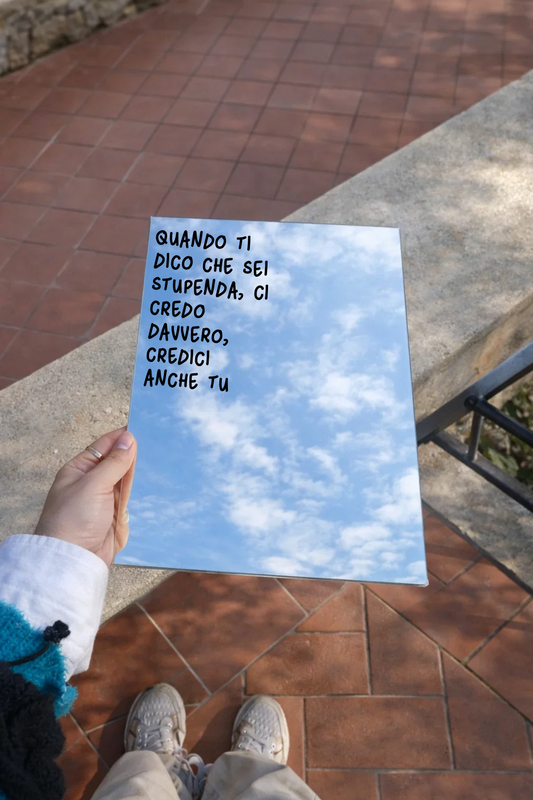 QUANDO TI
DICO CHE SEI
STUPENDA, CI
CREDO
DAVVERO,
CREDICI
ANCHE TU